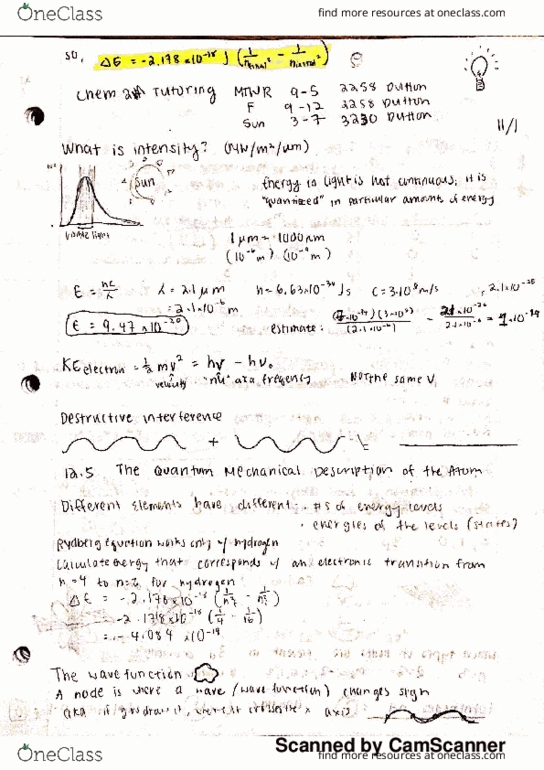 OneClass
find more resources at oneclass.com
so, ΔE = -2.178×10⁻¹⁸ J (1/n_final² - 1/n_initial²)
Chem 2A Tutoring MTWR 9-5 2258 Dutton
F 9-12 2258 Dutton
Sun 3-7 3230 Dutton
11/1
What is intensity? (MW/m²/μm)
sun
visible light
Energy in light is not continuous, it is
"quantized" in particular amounts of energy
1 μm = 1000 nm
(10⁻⁶ m) (10⁻⁹ m)
E = hc/λ λ = 2.1 μm h = 6.63×10⁻³⁴ Js c = 3·10⁸ m/s
= 2.1×10⁻⁶ m
E = 9.47×10⁻²⁰
estimate:
KE electron = ½ mv² = hν - hν₀
velocity "nu" aka frequency NOT the same v
Destructive interference
+
12.5 The Quantum Mechanical Description of the Atom
Different elements have different: · #s of energy levels
· energies of the levels (states)
Rydberg equation works only w/ hydrogen
Calculate energy that corresponds w/ an electronic transition from
n=4 to n=2 for hydrogen
ΔE = -2.178×10⁻¹⁸ (1/n_f² - 1/n_i²)
-2.178×10⁻¹⁸ (1/4 - 1/16)
= -4.084 ×10⁻¹⁹
The wave function
A node is where a wave (wave function) changes sign
aka if you draw it, where it crosses the x axis
Scanned by CamScanner
OneClass
find more resources at oneclass.com